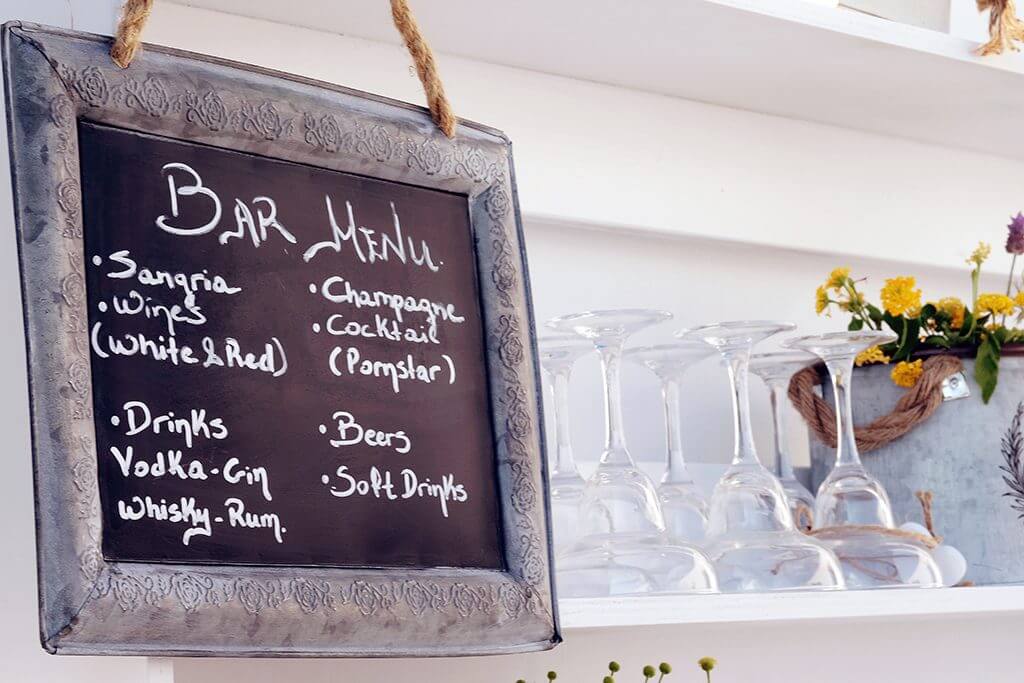 BAR MENU.
• Sangria
• Wines
(White & Red)
• Drinks
Vodka-Gin
Whisky-Rum.
• Champagne
• Cocktail
(Pornstar)
• Beers
• Soft Drinks